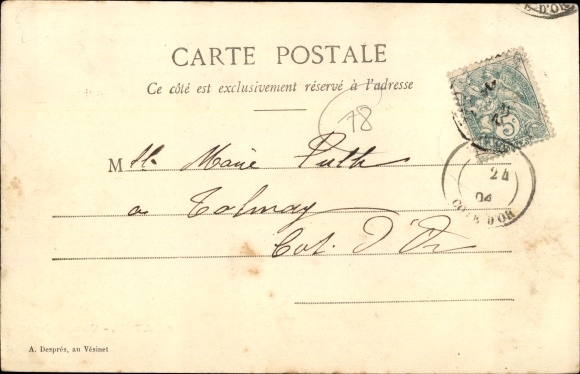 CARTE POSTALE
Ce côté est exclusivement réservé à l'adresse
78
5
24
04
CÔTE D'OR
Mlle Marie Puth
a Talmay
Cot. d'Or
A. Després, au Vésinet